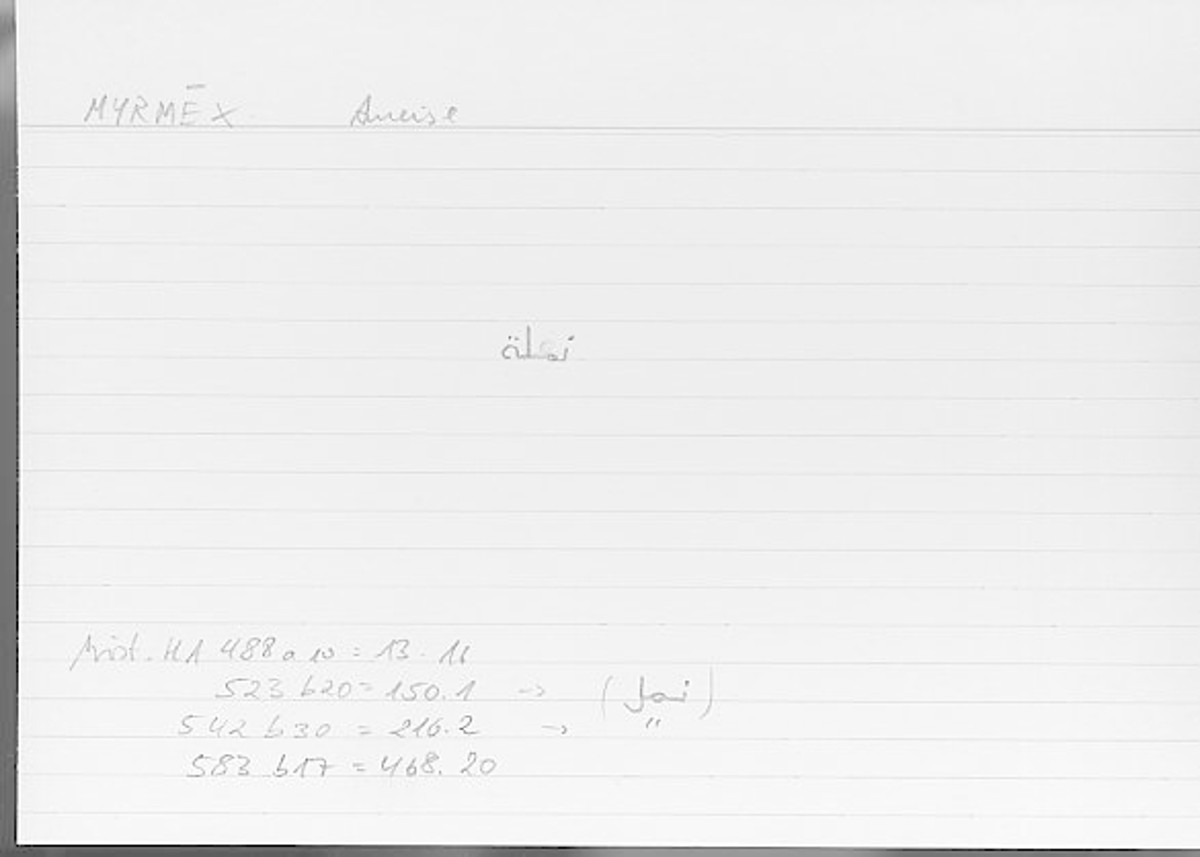 MYRMĒX Ameise
نملة
Arist. HA 488 a 10 = 13.16
523 b20 = 150.1 -> (نمل)
542 b30 = 216.2 -> "
583 b17 = 468.20